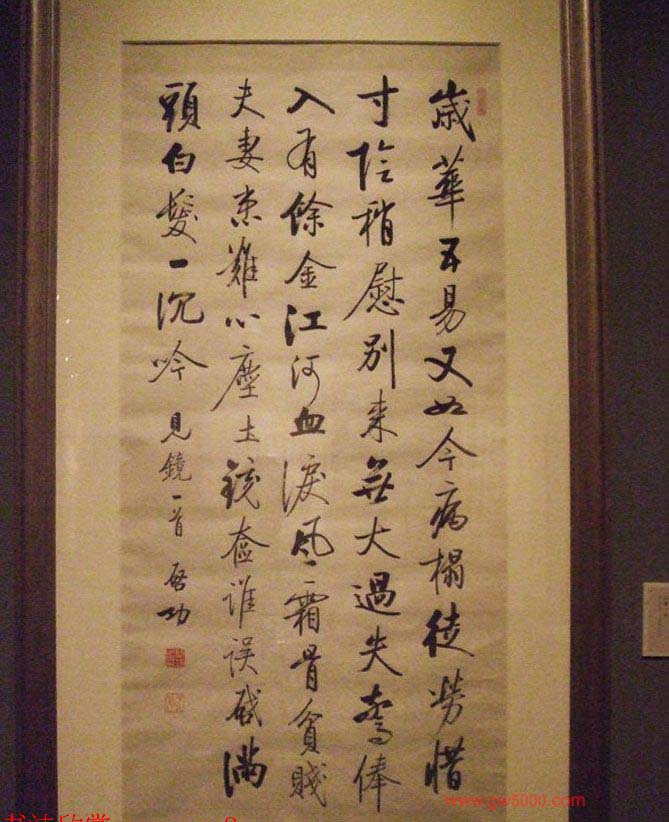 歲華五易又如今病榻徒勞惜
寸陰稍慰別来無大過失驚俸
入有餘金江河血淚風霜骨貧賤
夫妻患難心塵土鏡奩誰誤啟滿
頭白髮一沉吟 見鏡一首 啟功
书法欣赏